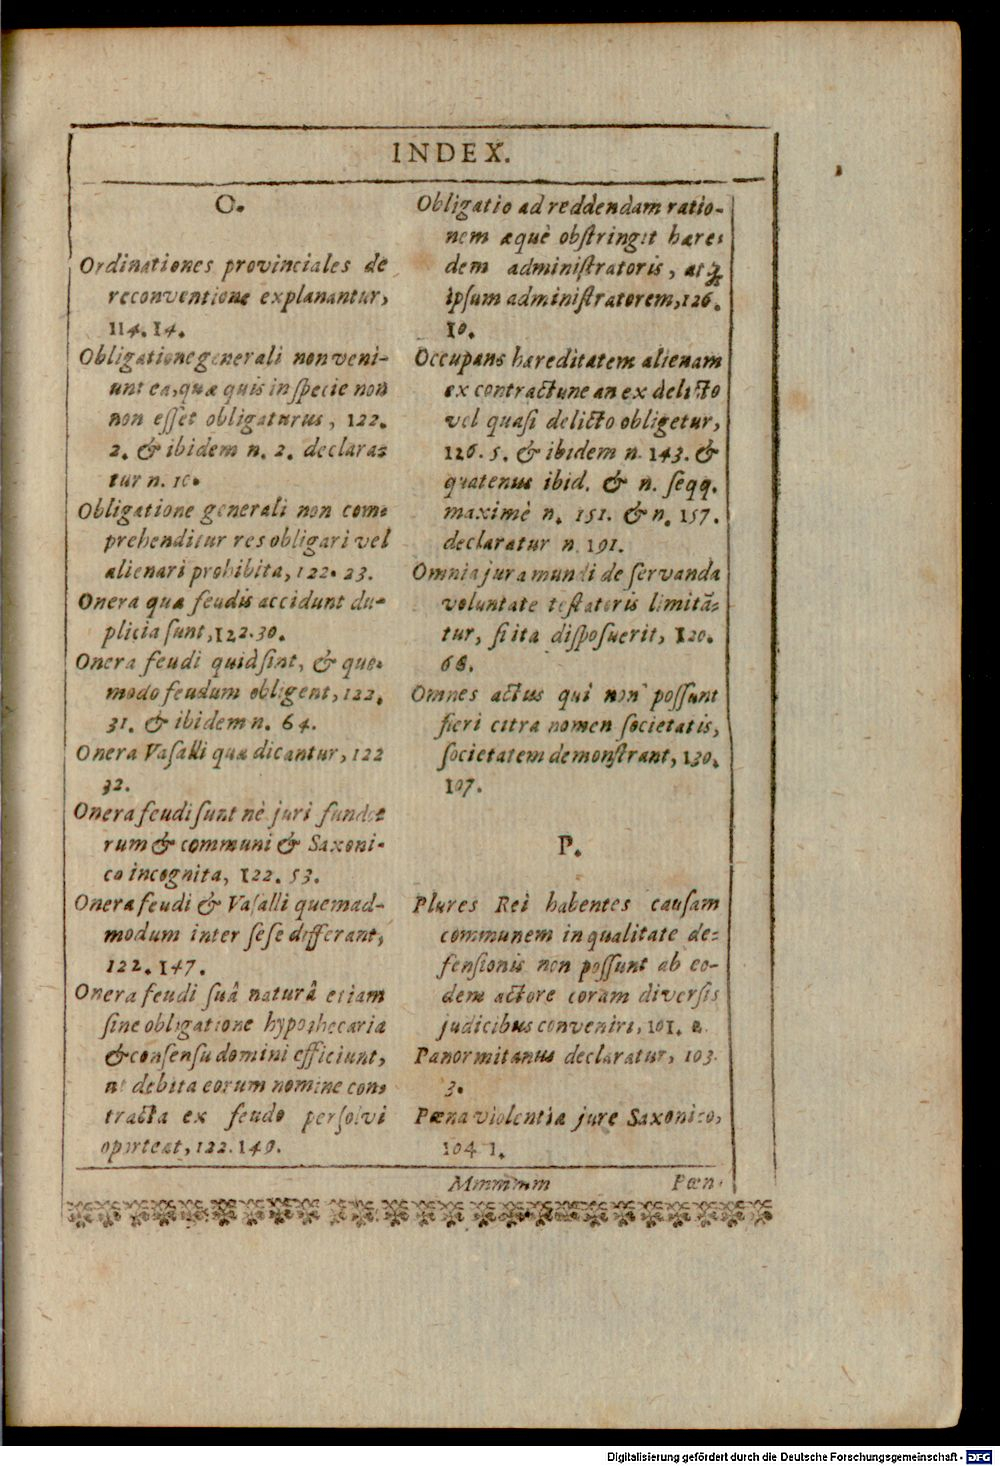 INDEX.
O.
Ordinationes provinciales de
reconventione explanantur,
114. 14.
Obligatione generali non veni-
unt ea, quæ quis in ſpecie non
non eſſet obligaturus, 122.
2. & ibidem n. 2. declara-
tur n. 10.
Obligatione generali non com-
prehenditur res obligari vel
alienari prohibita, 122. 23.
Onera quæ feudis accidunt du-
plicia ſunt, 122. 30.
Onera feudi quid ſint, & quo-
modo feudum obligent, 122.
31. & ibidem n. 64.
Onera Vaſalli quæ dicantur, 122
32.
Onera feudi ſunt nè juri fundo-
rum & communi & Saxoni-
co incognita, 122. 53.
Onera feudi & Vaſalli quemad-
modum inter ſeſe differant,
122. 147.
Onera feudi ſuâ naturâ etiam
ſine obligatione hypothecaria
& conſenſu domini efficiunt,
ut debita eorum nomine con-
tracta ex feudo perſolvi
oporteat, 122. 149.
Obligatio ad reddendam ratio-
nem æquè obſtringit hære-
dem adminiſtratoris, atq;
ipſum adminiſtratorem, 126.
10.
Occupans hæreditatem alienam
ex contractu ne an ex delicto
vel quaſi delicto obligetur,
126. 5. & ibidem n. 143. &
quatenus ibid. & n. ſeqq.
maximè n. 151. & n. 157.
declaratur n. 191.
Omnia jura mundi de ſervanda
voluntate teſtatoris limitã-
tur, ſi ita diſpoſuerit, 120.
68.
Omnes actus qui non poſſunt
fieri citra nomen ſocietatis,
ſocietatem demonſtrant, 130.
107.
P.
Plures Rei habentes cauſam
communem in qualitate de-
fenſionis non poſſunt ab eo-
dem actore coram diverſis
judicibus conveniri, 101. 2.
Panormitanus declaratur, 103.
3.
Pœna violentiæ jure Saxonico,
104 1.
Mmmmm
Pœn-
Digitalisierung gefördert durch die Deutsche Forschungsgemeinschaft - DFG